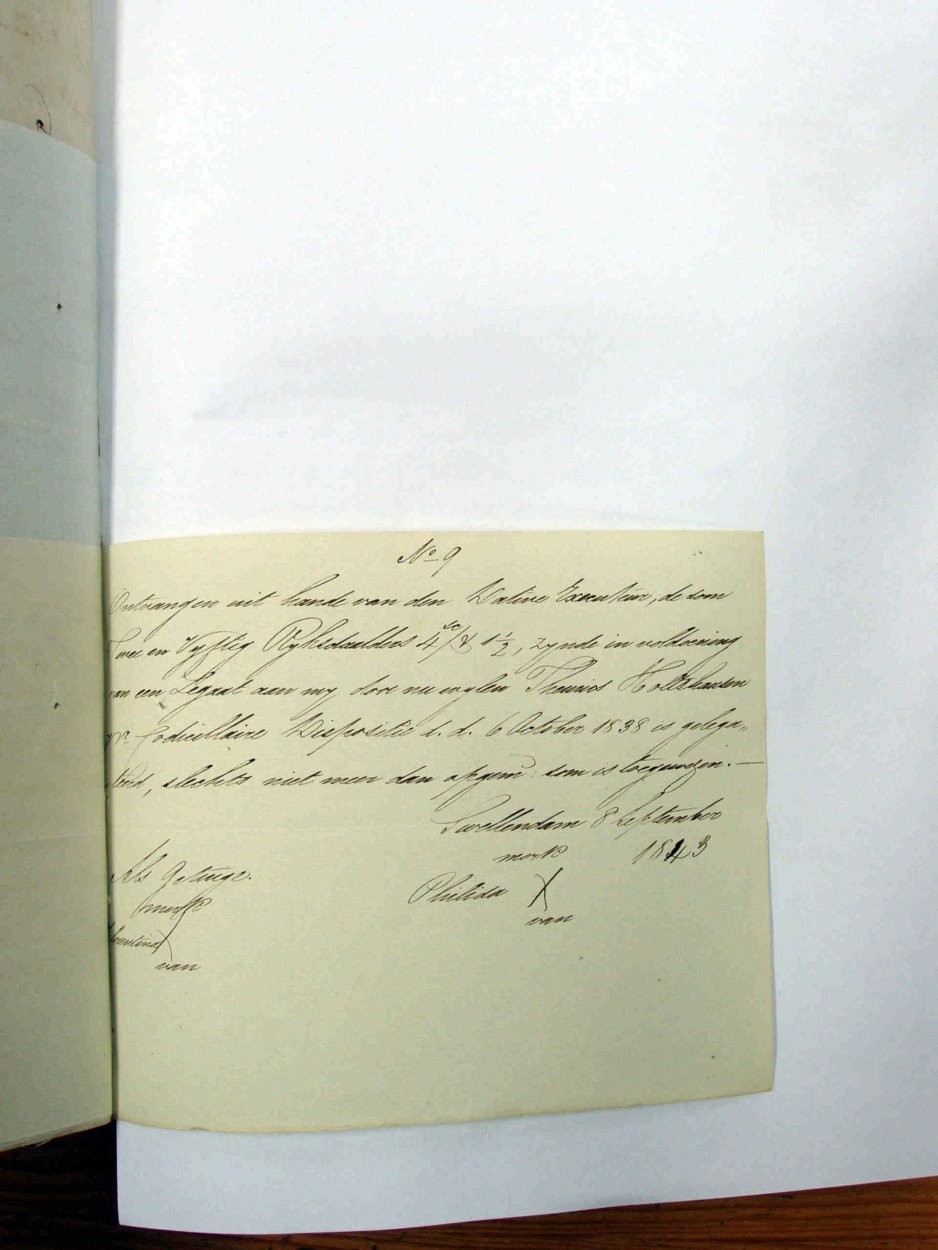 No 9
Ontvangen uit hande van den Dative Executeur, de som
Twee en Vyftig Ryksdaalders 4 sc/& 1 1/2, zynde in voldoening
van een Legaat aan my door nu wylen Theunis Holtshausen
pr. Codicillaire Dispositie d. d. 6 October 1838 is gelega„
teerd, slechts niet meer dan opgem: som is toegewezen.—
Swellendam 8 September
merk 1843
Als Getuige.
Philida X
merk
van
X
van